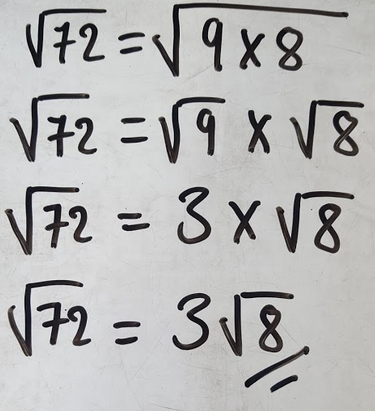 √72 = √9 × 8
√72 = √9 × √8
√72 = 3 × √8
√72 = 3√8